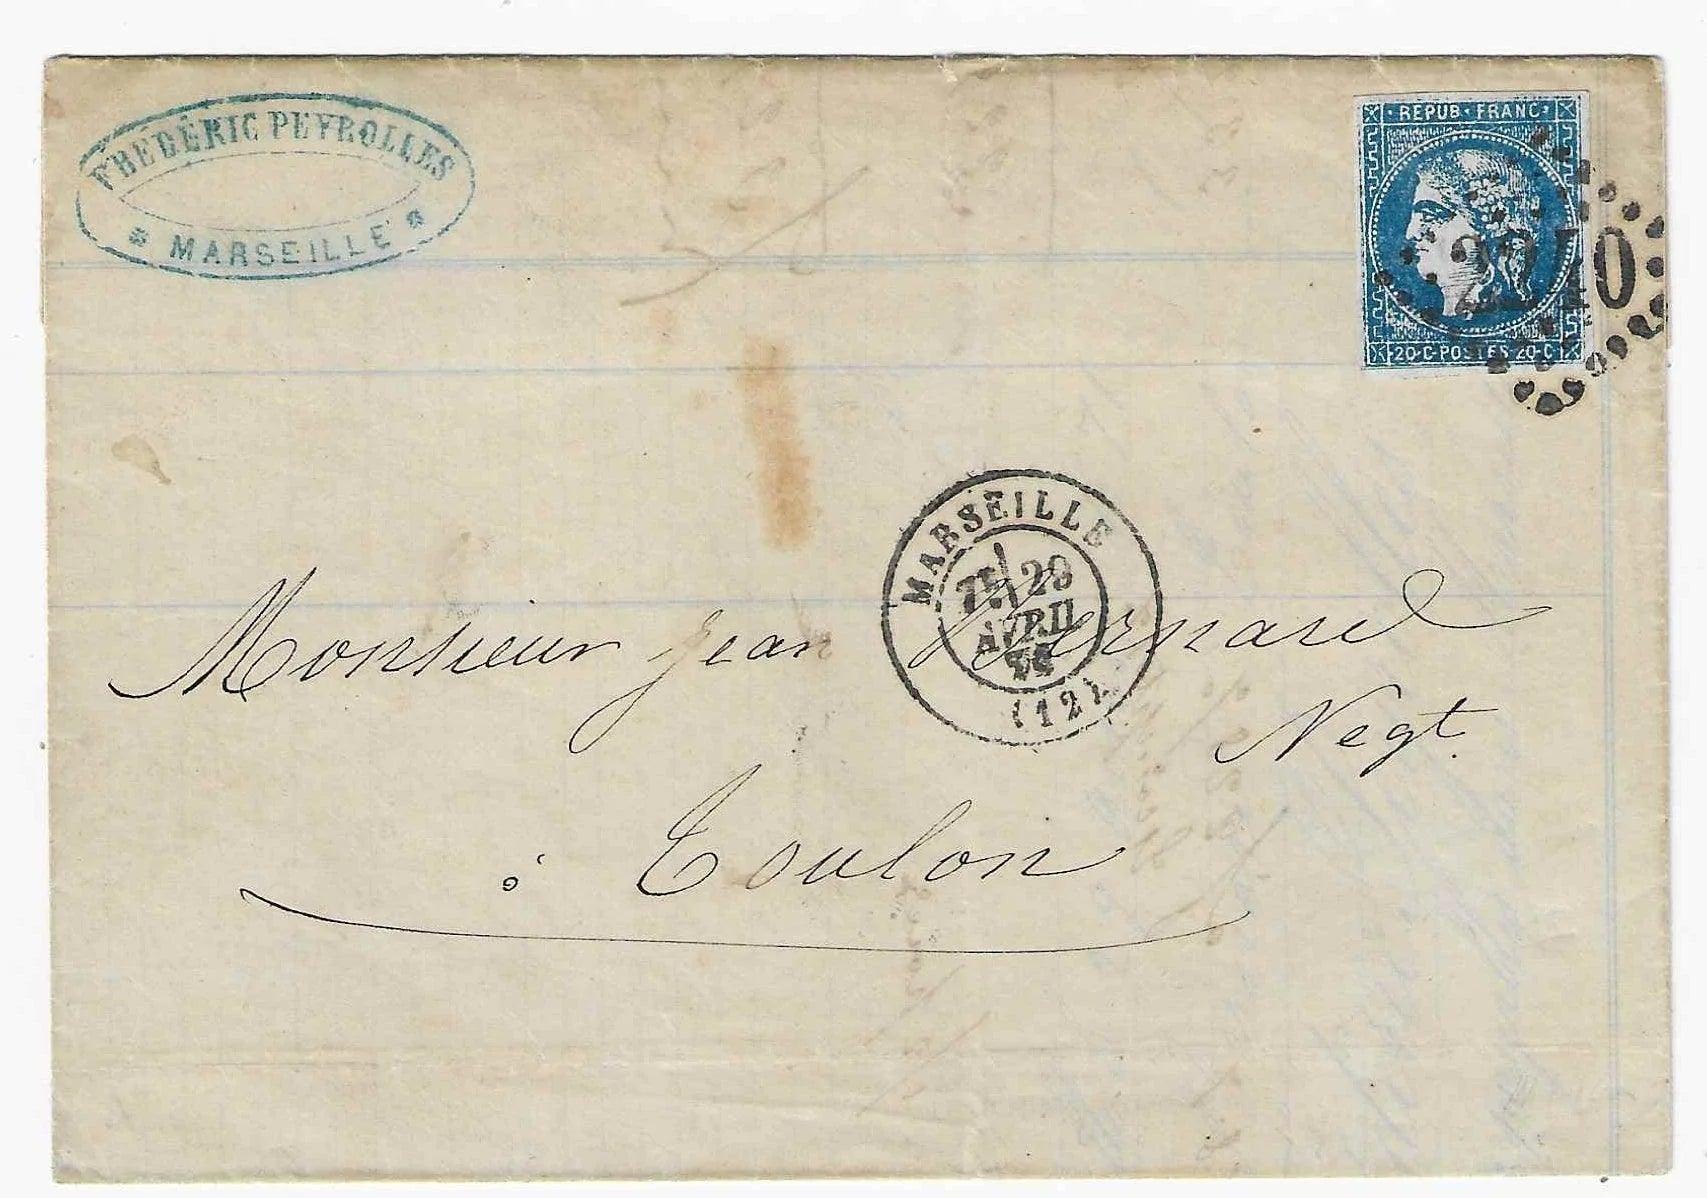 FRÉDÉRIC PEYROLLES
* MARSEILLE *
REPUB · FRANC
2240
20 · C · POSTES · 20 · C
MARSEILLE
29
AVRIL
(12)
Monsieur Jean
Negt.
à Toulon